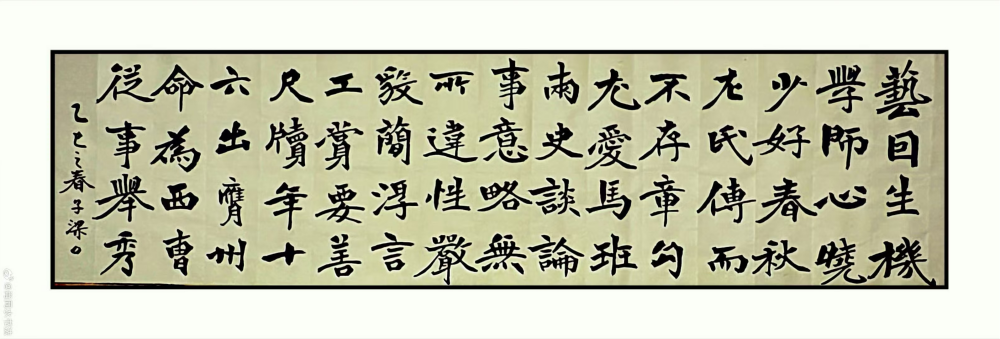 藝日生機
學師心曉
少好春秋
左氏傳而
不存章句
尤愛馬班
兩史談論
事意略無
所違性嚴
毅簡浮言
工賞要善
尺牘年十
六出膺州
命為西曹
從事舉秀
乙巳之春子梁